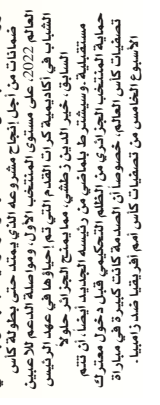 ضمانات من أجل إنجاح مشروعه الذي يمتد حتى بطولة كأس
العالم 2022، على مستوى المنتخب الأول، ومواصلة الدعم للاعبين
الشباب في أكاديمية كرات القدم التي تم إحياؤها في عهد الرئيس
السابق، خير الدين زطشي، مما يمنح الجزائر حلولاً
مستقبلية. وسيشترط بلماضي من رئيسه الجديد أيضا، أن تتم
حماية المنتخب الجزائري من الظلم التحكيمي قبل دخول معترك
تصفيات كأس العالم، خصوصا أن الصدمة كانت كبيرة في مباراة
الأسبوع الخامس من تصفيات كأس أمم أفريقيا ضد زامبيا.